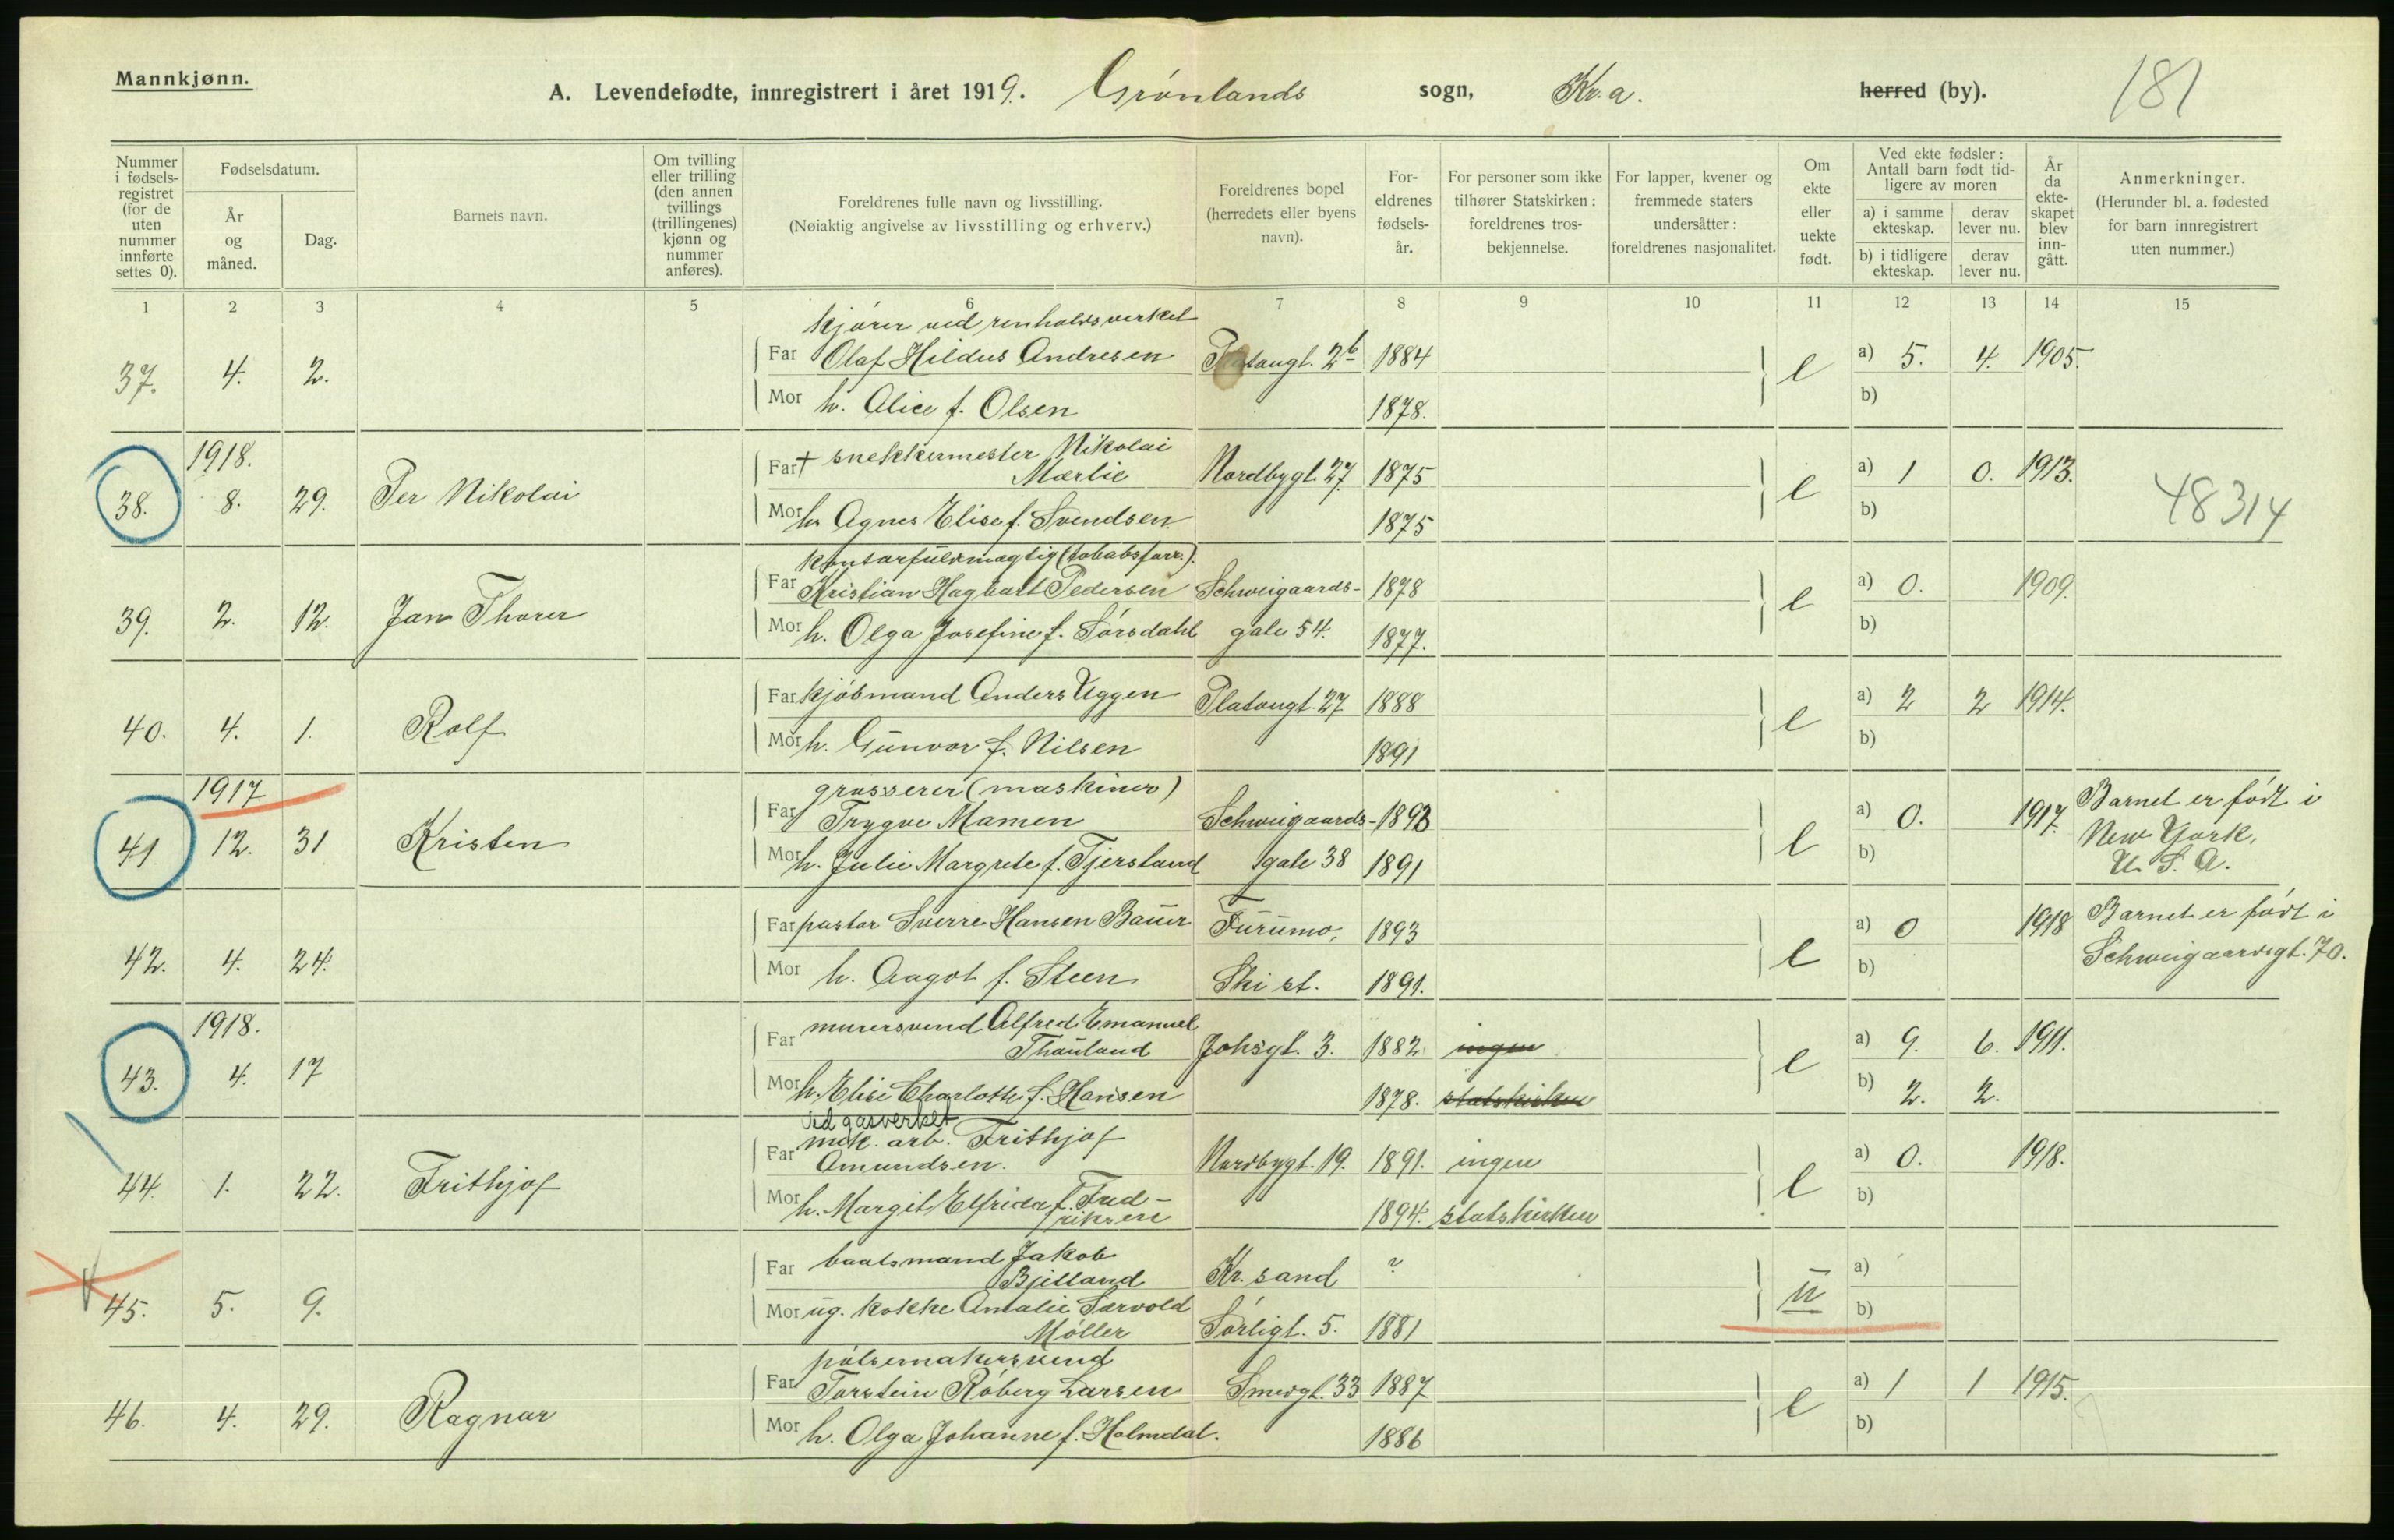 Mannkjønn.
A. Levendefødte, innregistrert i året 1919. Grønlands sogn, Kr.a. herred (by). 181
Nummer i fødsels-registret (for de uten nummer innførte settes 0).
Fødselsdatum.
År og måned.
Dag.
Barnets navn.
Om tvilling eller trilling (den annen tvillings (trillingenes) kjønn og nummer anføres).
Foreldrenes fulle navn og livsstilling.
(Nøiaktig angivelse av livsstilling og erhverv.)
Foreldrenes bopel (herredets eller byens navn).
For-eldrenes fødsels-år.
For personer som ikke tilhører Statskirken: foreldrenes tros-bekjennelse.
For lapper, kvener og fremmede staters undersåtter: foreldrenes nasjonalitet.
Om ekte eller uekte født.
Ved ekte fødsler: Antall barn født tid-ligere av moren
a) i samme ekteskap.
derav lever nu.
b) i tidligere ekteskap.
derav lever nu.
År da ekte-skapet blev inn-gått.
Anmerkninger.
(Herunder bl. a. fødested for barn innregistrert uten nummer.)
1 2 3 4 5 6 7 8 9 10 11 12 13 14 15
kjører ved renholdsverket
37. 4. 2. Far Olaf Hildus Andresen Platougt. 2b 1884 e a) 5. 4. 1905.
Mor h. Alice f. Olsen 1878. b)
1918.
38. 8. 29. Per Nikolai Far † snekkermester Nikolai
Mærlie Nordbygt. 27. 1875 e a) 1 0. 1913. 48314
Mor h. Agnes Elise f. Svendsen 1875 b)
kontorfuldmægtig (tobaksforr.).
39. 2. 12. Jan Thorer Far Kristian Hagbart Pedersen Schweigaards- 1878 e a) 0. 1909.
Mor h. Olga Josefine f. Sørsdahl gate 54. 1877. b)
40. 4. 1. Rolf Far kjøbmand Anders Uggen Platougt. 27 1888 e a) 2 2 1914.
Mor h. Gunvor f. Nilsen 1891 b)
1917 grosserer (maskiner)
41 12. 31 Kristen Far Trygve Mamen Schweigaards- 1893 e a) 0. 1917. Barnet er født i
New York,
Mor h. Julie Margrete f. Tjersland gate 38 1891 b) U. S. A.
42. 4. 24. Far pastor Sverre Hansen Bauer Furumo, 1893 e a) 0 1918 Barnet er født i
Mor h. Aagot f. Steen Ski st. 1891. b) Schweigaardsgt. 70.
1918.
43. 4. 17 Far murersvend Alfred Emanuel
Thauland Johsgt. 3. 1882. ingen e a) 9. 6. 1911.
Mor h. Elise Charlotte f. Hansen 1878. statskirken b) 2. 2.
ved gasverket
44. 1. 22. Frithjof Far mek. arb. Frithjof
Amundsen. Nordbygt. 19. 1891. ingen e a) 0. 1918.
Mor h. Margit Elfrida f. Fred-
riksen 1894. statskirken b)
45. 5. 9. Far baatsmand Jakob
Bjelland Kr.sand ? u a)
Mor ug. kokke Amalie Særvold
Møller Sørligt. 5. 1881 b)
pølsemakersvend
46. 4. 29. Ragnar Far Torstein Røberg Larsen Smedgt. 33 1887 e a) 1 1 1915.
Mor h. Olga Johanne f. Holmdal. 1886 b)